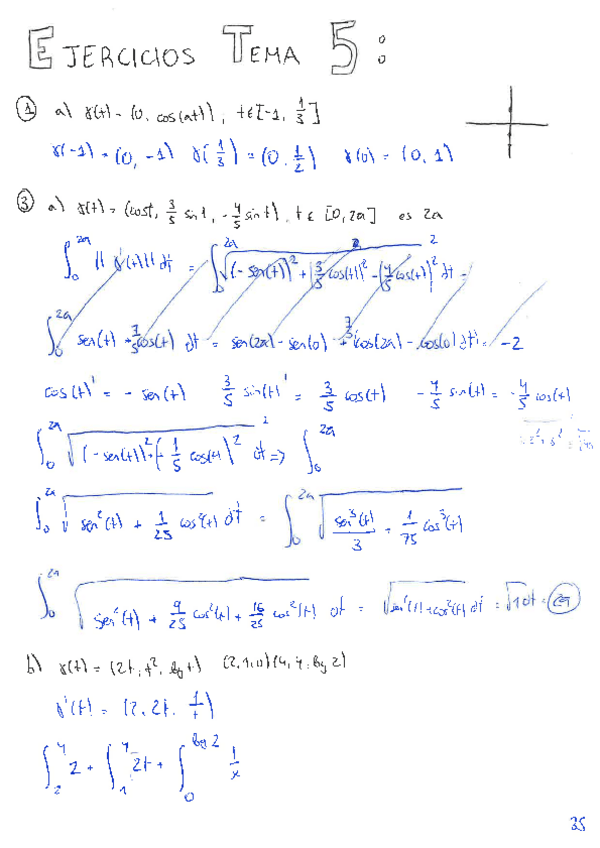 EJERCICIOS TEMA 5:
① a) γ(t) = (0, cos(at)), t∈[-1, 1/3]
γ(-1) = (0, -1) γ(1/3) = (0, 1/2) γ(0) = (0, 1)
③ a) γ(t) = (cost, 3/5 sin t, -4/5 sin t), t∈ [0, 2a] es 2a
∫₀^2a ||γ'(t)|| dt = ∫₀^2a √((-sen(t))² + (3/5 cos(t))² - (4/5 cos(t))²) dt =
∫₀^2a sen(t) + 7/5 cos(t) dt = sen(2a) - sen(0) + 7/5 cos(2a) - cos(0) dt = -2
cos(t)' = - sen(t) 3/5 sin(t)' = 3/5 cos(t) -4/5 sin(t) = -4/5 cos(t)
∫₀^2a √((-sen(t))² + (-1/5 cos(t))²) dt => ∫₀^2a
∫₀^2a √(sen²(t) + 1/25 cos²(t)) dt = ∫₀^2a √(sen³(t)/3 + 1/75 cos³(t))
∫₀^2a √(sen²(t) + 9/25 cos²(t) + 16/25 cos²(t)) dt = √(sen²(t) + cos²(t)) dt = √1 dt = 2a
b) γ(t) = (2t, t², log t) (2, 1, 0) (4, 4, log 2)
γ'(t) = (2, 2t, 1/t)
∫₂⁴ 2 + ∫₁⁴ 2t + ∫₀^log 2 1/x
35